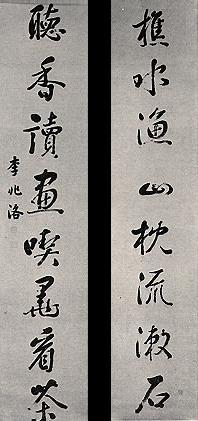 樵水漁山枕流漱石
聽香讀畫喫墨看茶
李兆洛